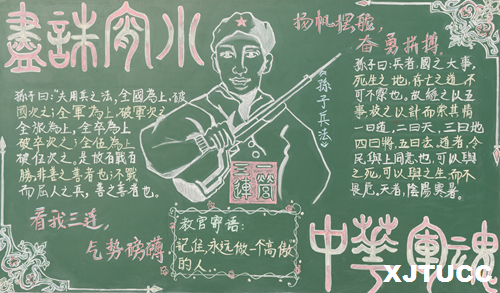 盡誅宵小
孫子曰:"夫用兵之法,全國為上,破
國次之;全軍為上,破軍次之
全旅為上,全卒為上
破卒次之;全伍為上
破伍次之。是故百戰百
勝,非善之善者也;不戰
而屈人之兵,善之善者也。
看我三連,
气势磅礴
《孫子兵法》
一營
三連
教官寄语:
记住,永远做一个高傲
的人
扬帆
奋勇拼搏
孫子曰:兵者,國之大事,
死生之地,存亡之道,不
可不察也。故經之以五
事,校之以計而索其情
一曰道,二曰天,三曰地
四曰將,五曰法。道者,令
民與上同意也,可以與
之死,可以與之生而不
畏危。天者,陰陽寒暑。
中華軍魂
XJTUCC